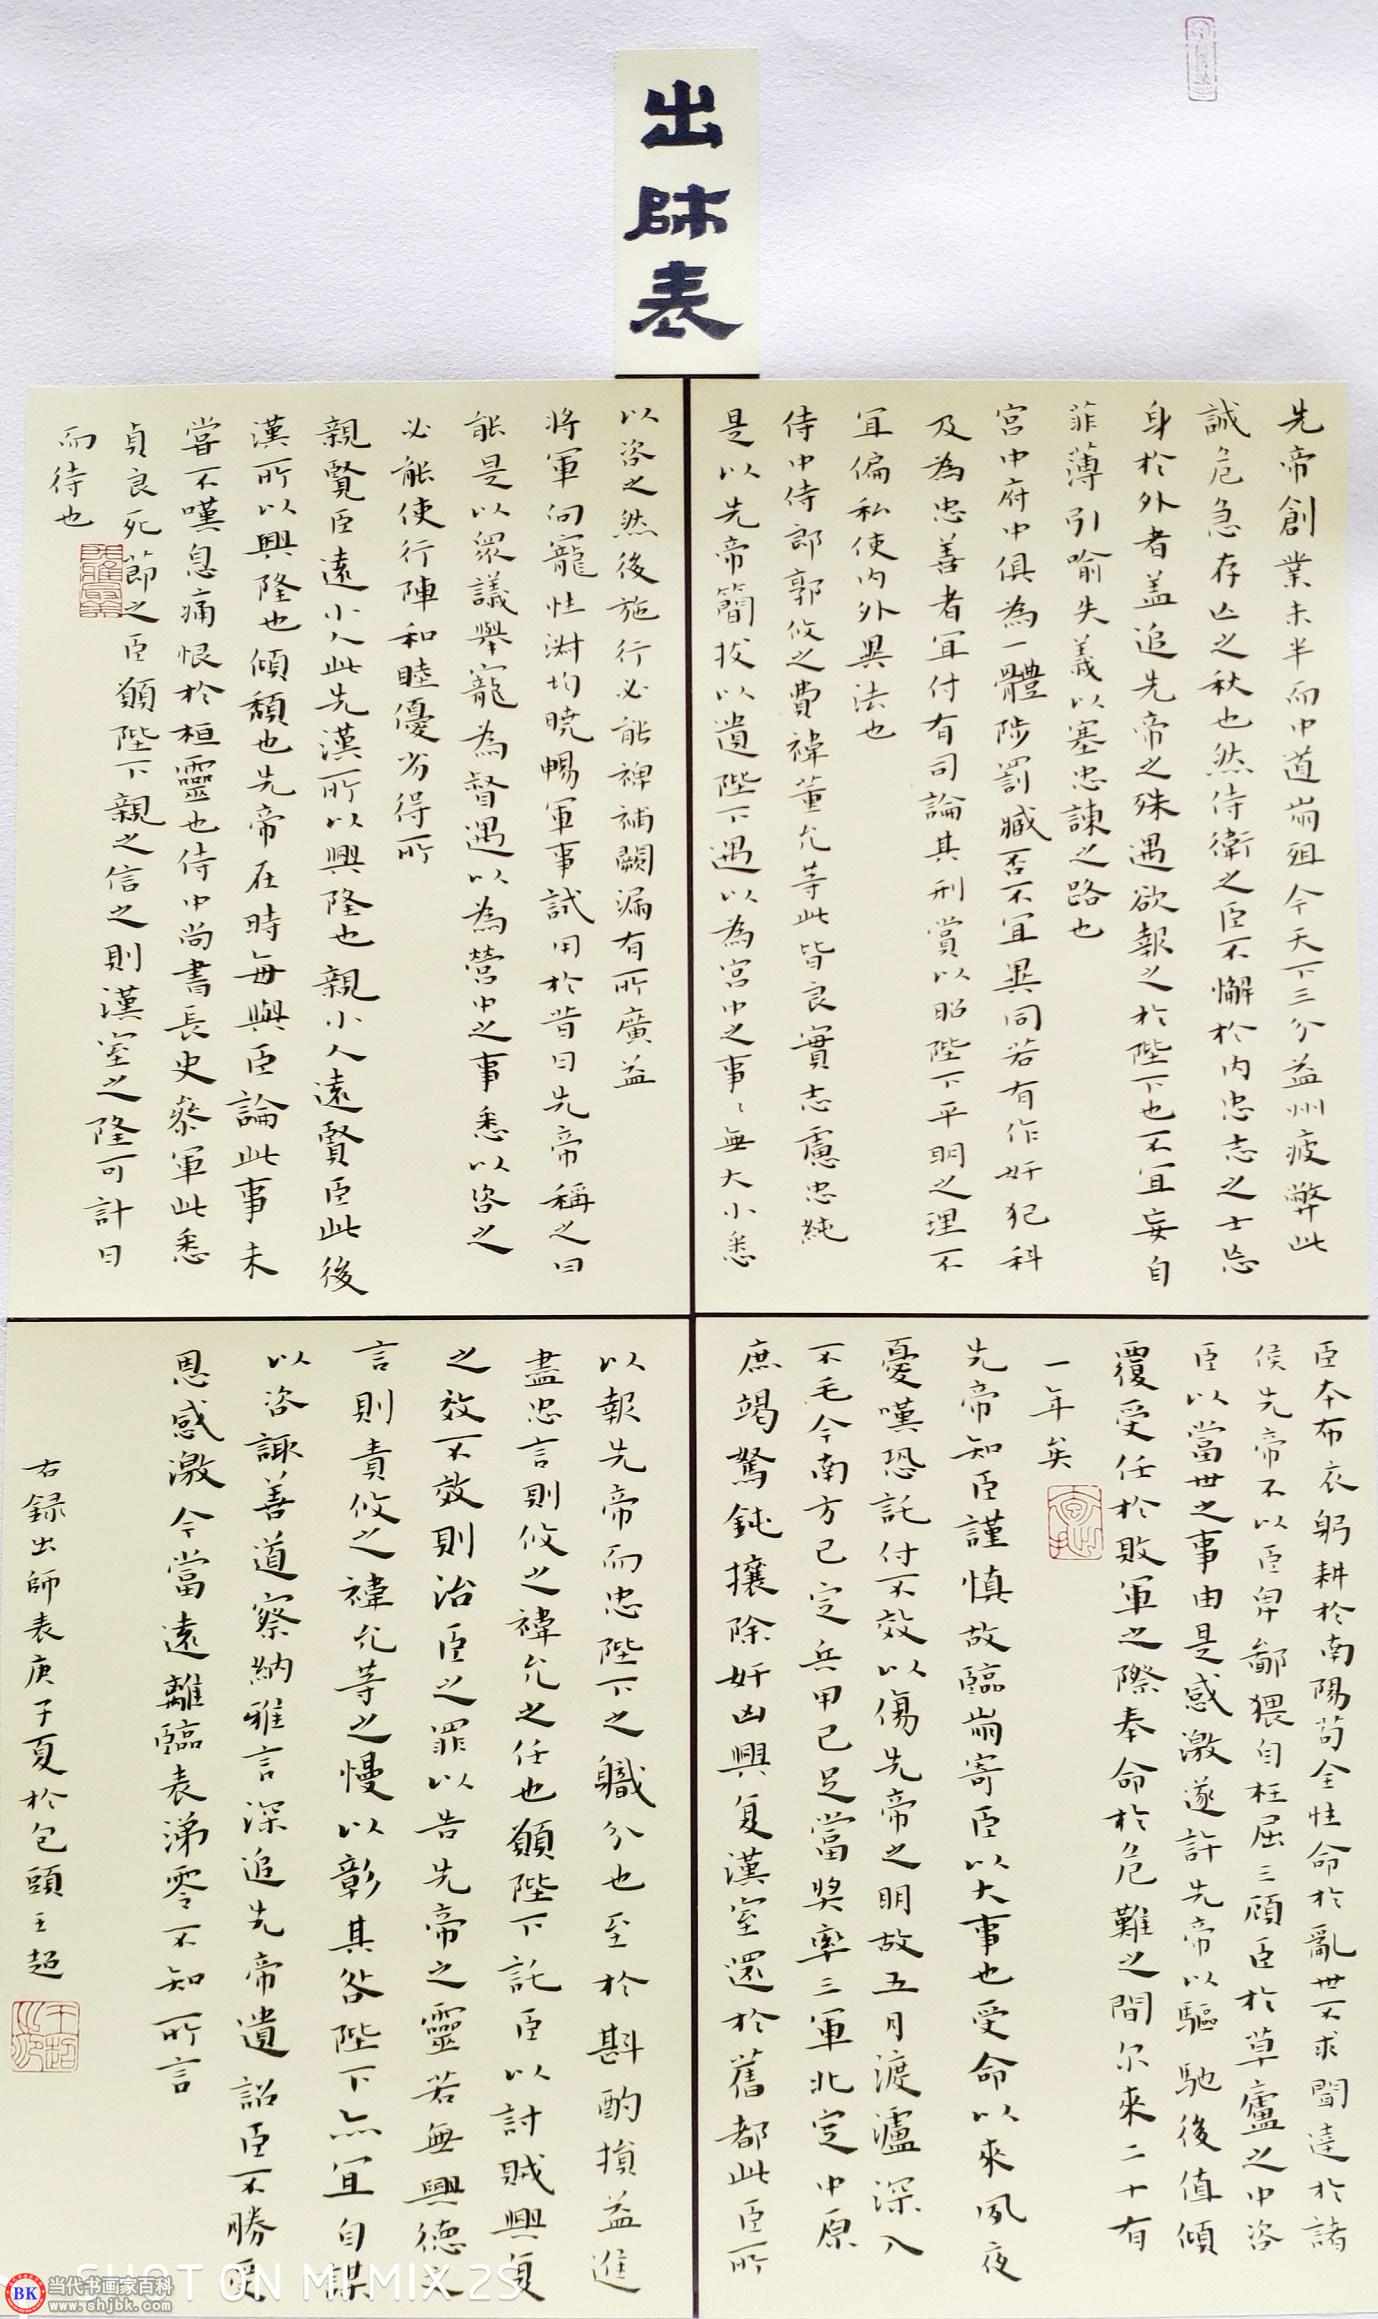 出師表
先帝創業未半而中道崩殂今天下三分益州疲弊此
誠危急存亡之秋也然侍衛之臣不懈於内忠志之士忘
身於外者盖追先帝之殊遇欲報之於陛下也不宜妄自
菲薄引喻失義以塞忠諫之路也
宮中府中俱為一體陟罰臧否不宜異同若有作奸犯科
及為忠善者宜付有司論其刑賞以昭陛下平明之理不
宜偏私使内外異法也
侍中侍郎郭攸之費禕董允等此皆良實志慮忠純
是以先帝簡拔以遺陛下遇以為宮中之事〻無大小悉
以咨之然後施行必能裨補闕漏有所廣益
將軍向寵性淑均曉暢軍事試用於昔日先帝稱之曰
能是以眾議舉寵為督遇以為營中之事悉以咨之
必能使行陣和睦優劣得所
親賢臣遠小人此先漢所以興隆也親小人遠賢臣此後
漢所以興隆也傾頹也先帝在時每與臣論此事未
嘗不嘆息痛恨於桓靈也侍中尚書長史參軍此悉
貞良死節之臣願陛下親之信之則漢室之隆可計日
而待也
臣本布衣躬耕於南陽苟全性命於亂世不求聞達於諸
侯先帝不以臣卑鄙猥自枉屈三顧臣於草廬之中咨
臣以當世之事由是感激遂許先帝以驅馳後值傾
覆受任於敗軍之際奉命於危難之間尔來二十有
一年矣
先帝知臣謹慎故臨崩寄臣以大事也受命以來夙夜
憂嘆恐託付不效以傷先帝之明故五月渡瀘深入
不毛今南方已定兵甲已足當奖率三軍北定中原
庶竭駑鈍攘除奸凶興复漢室還於舊都此臣所
以報先帝而忠陛下之職分也至於斟酌損益進
盡忠言則攸之禕允之任也願陛下託臣以討賊興复
之效不效則治臣之罪以告先帝之靈若無興德之
言則責攸之禕允等之慢以彰其咎陛下亦宜自謀
以咨諏善道察納雅言深追先帝遺詔臣不勝受
恩感激今當遠離臨表涕零不知所言
右録出師表庚子夏於包頭王超
SHOT ON MI MIX 2S
BK
当代书画家百科
www.shjbk.com